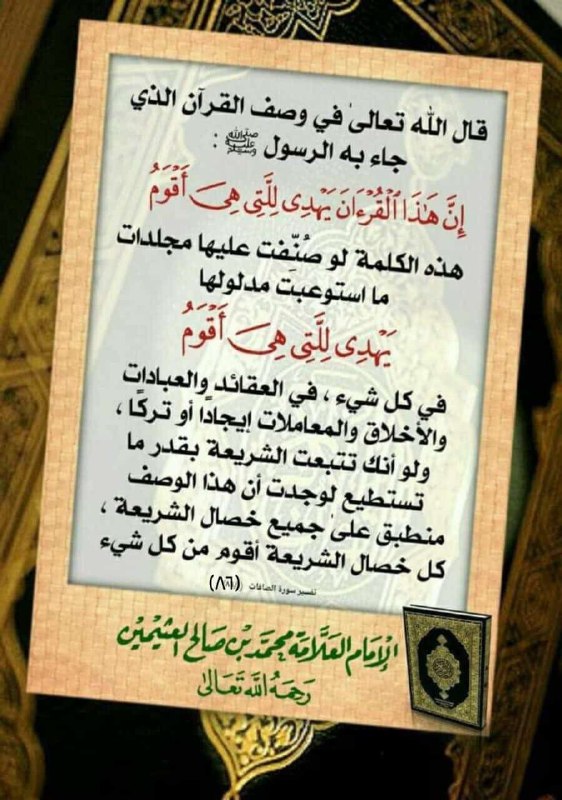 قال الله تعالى في وصف القرآن الذي
جاء به الرسول ﷺ :
إِنَّ هَٰذَا ٱلْقُرْءَانَ يَهْدِى لِلَّتِى هِىَ أَقْوَمُ
هذه الكلمة لو صُنِّفت عليها مجلدات
ما استوعبت مدلولها
يَهْدِى لِلَّتِى هِىَ أَقْوَمُ
في كل شيء ، في العقائد والعبادات
والأخلاق والمعاملات إيجادًا أو تركًا ،
ولو أنك تتبعت الشريعة بقدر ما
تستطيع لوجدت أن هذا الوصف
منطبق على جميع خصال الشريعة ،
كل خصال الشريعة أقوم من كل شيء
تفسير سورة الصافات (٨٦)
الإمام العلامة محمد بن صالح العثيمين
رحمه الله تعالى